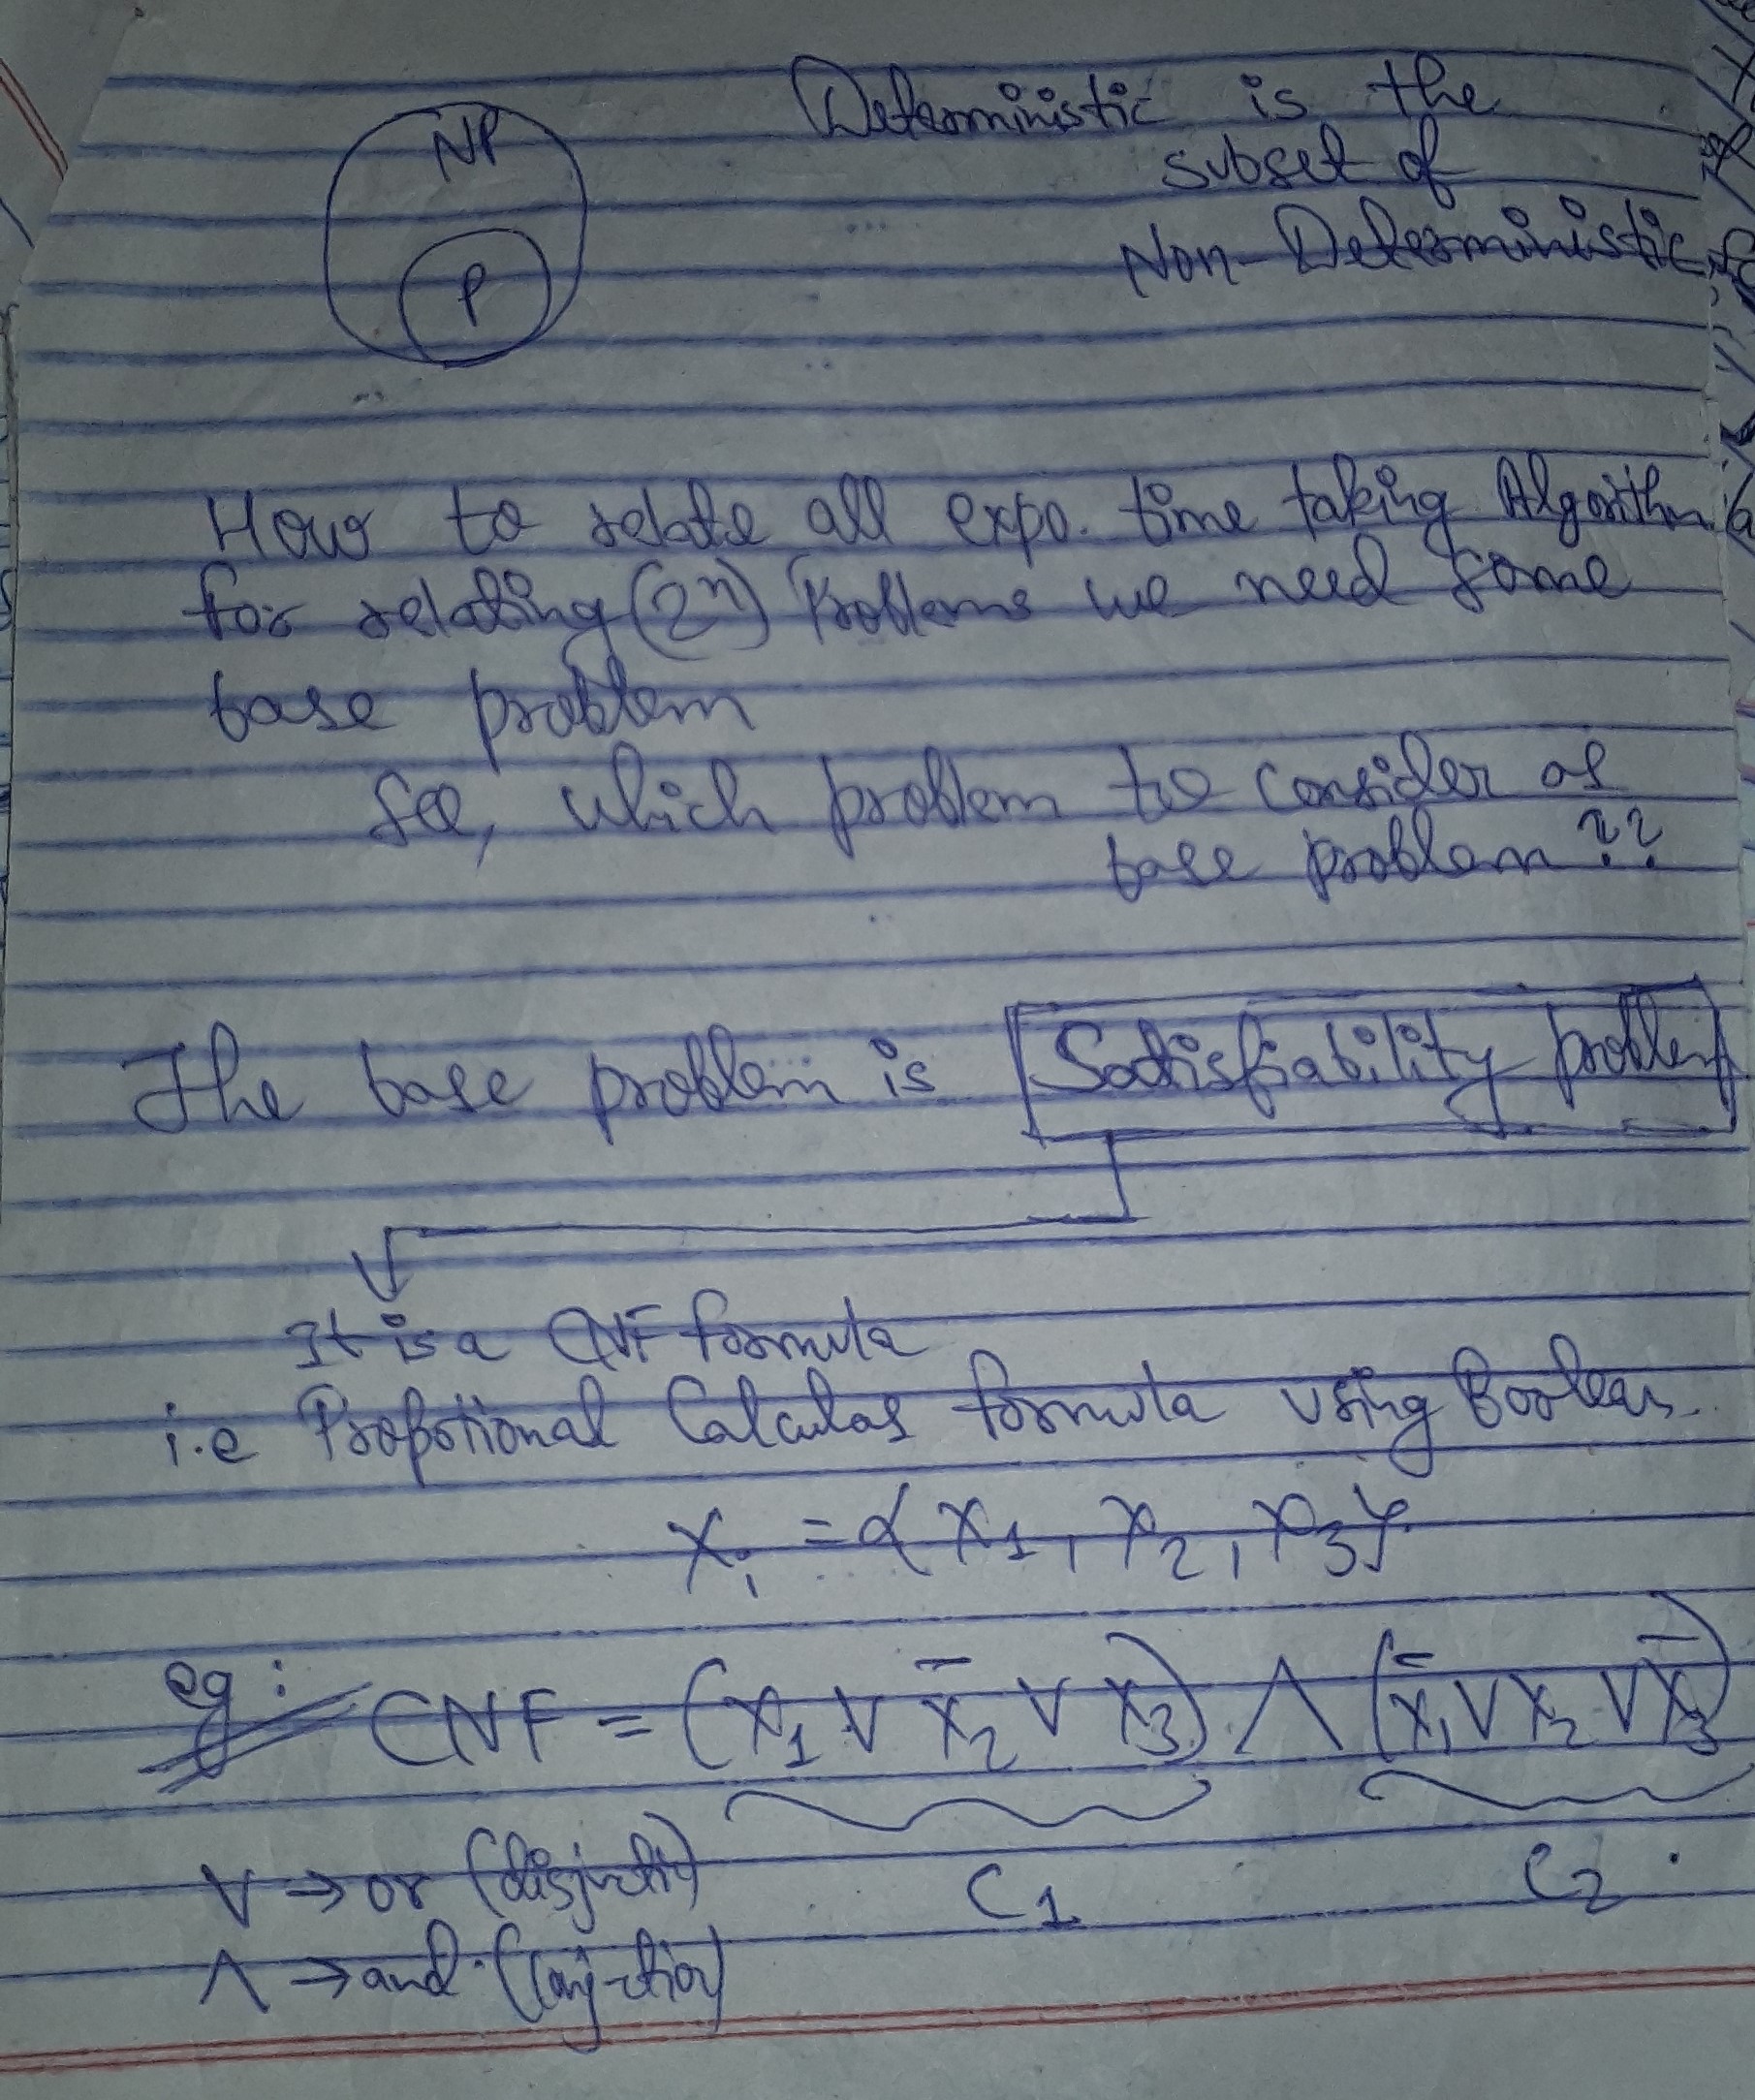 NP
P
Deterministic is the
subset of
Non-Deterministic
How to relate all expo. time taking Algorithm
for relating (2ⁿ) Problems we need some
base problem
so, which problem to consider as
base problem ??
The base problem is Satisfiability problem
It is a CNF formula
i.e Propotional Calculas formula using Boolean
xᵢ = {x₁, x₂, x₃}
eg: CNF = (x₁ ∨ x̄₂ ∨ x₃) ∧ (x̄₁ ∨ x₂ ∨ x̄₃)
C₁ C₂
∨ → or
∧ → and